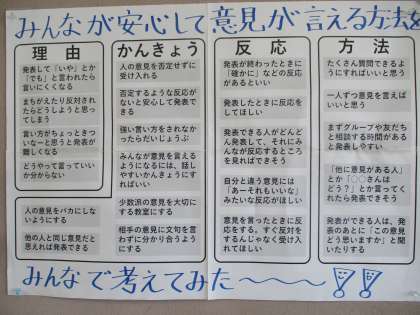 みんなが安心して意見が言える方法を
理由
発表して「いや」とか
「でも」と言われたら
言いにくくなる
まちがえたり反対され
たらどうしようと思っ
てしまう
言い方がちょっときつ
いなーと思うと発表が
難しくなる
どうやって言っていい
か分からない
人の意見をバカにしな
いようにする
他の人と同じ意見だと
思えれば発表できる
かんきょう
人の意見を否定せずに
受け入れる
否定するような反応が
ないと安心して発表で
きる
強い言い方をされなか
ったらだいじょうぶ
みんなが意見を言える
ようになるには、話し
やすいかんきょうにす
ればいい
少数派の意見を大切に
する教室にする
相手の意見に文句を言
わずに分かり合うよう
にする
反応
発表が終わったときに
「確かに」などの反応
があるといい
発表したときに反応を
してほしい
発表できる人がどんど
ん発表して、それにみ
んなが反応するところ
を見ればできそう
自分と違う意見には
「あーそれもいいな」
みたいな反応がほしい
意見を言ったときに反
応をする。すぐ反対を
するんじゃなく受け入
れてほしい
方法
たくさん質問できるよ
うにすればいいと思う
一人ずつ意見を言えば
いいと思う
まずグループや友だち
と相談する時間がある
と発表しやすい
「他に意見がある人」
とか「○○さんは
どう？」とか言ってく
れたら発表できそう
発表ができる人は、発
表のあとに「この意見
どう思いますか」と聞
いたりする
みんなで考えてみた〜〜〜!!